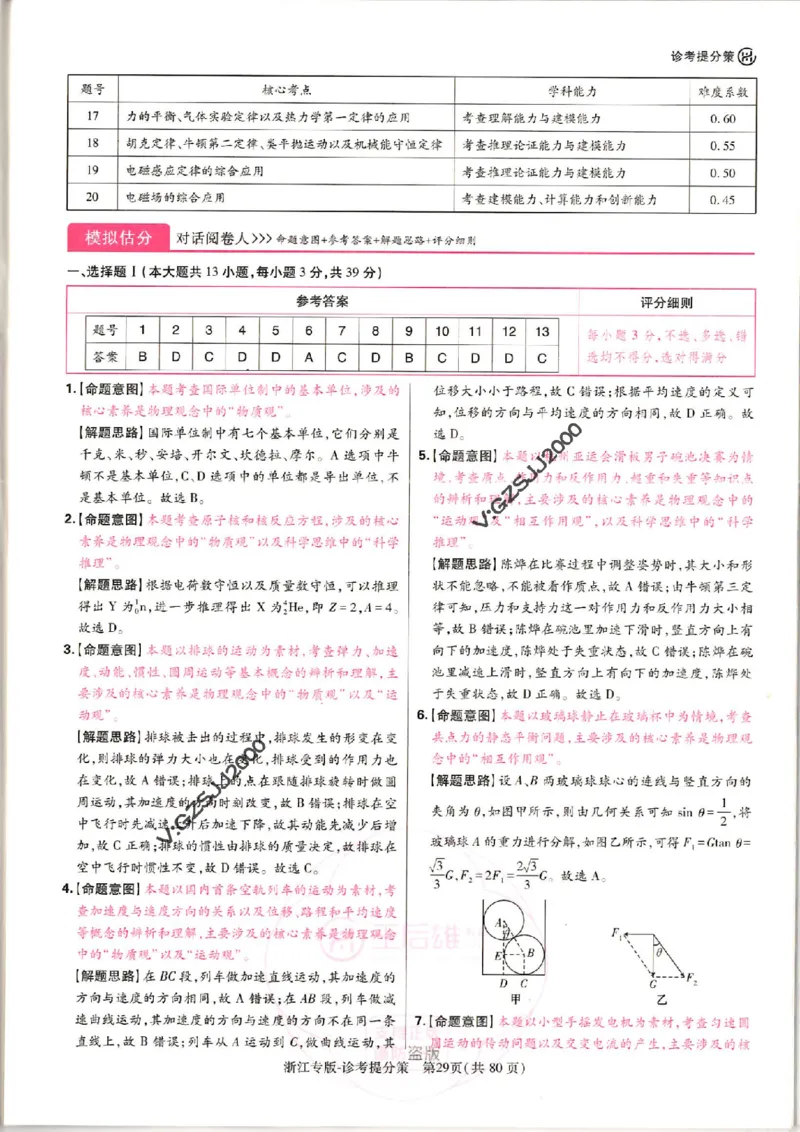 诊考提分策
题号 核心考点 学科能力 难度系数
17 力的平衡、气体实验定律以及热力学第一定律的应用 考查理解能力与建模能力 0.60
18 胡克定律、牛顿第二定律、类平抛运动以及机械能守恒定律 考查推理论证能力与建模能力 0.55
19 电磁感应定律的综合应用 考查推理论证能力与建模能力 0.50
20 电磁场的综合应用 考查建模能力、计算能力和创新能力 0.45
模拟估分 对话阅卷人>>> 命题意图+参考答案+解题思路+评分细则
一、选择题Ⅰ(本大题共13小题,每小题3分,共39分)
参考答案 评分细则
题号 1 2 3 4 5 6 7 8 9 10 11 12 13
答案 B D C D D A C D B C D D C
每小题3分,不选、多选、错
选均不得分,选对得满分
1.【命题意图】本题考查国际单位制中的基本单位,涉及的
核心素养是物理观念中的“物质观”。
【解题思路】国际单位制中有七个基本单位,它们分别是
千克、米、秒、安培、开尔文、坎德拉、摩尔。A选项中牛
顿不是基本单位,C、D选项中的单位都是导出单位,不
是基本单位。故选B。
2.【命题意图】本题考查原子核和核反应方程,涉及的核心
素养是物理观念中的“物质观”以及科学思维中的“科学
推理”。
【解题思路】根据电荷数守恒以及质量数守恒,可以推理
得出Y为¹₀n,进一步推理得出X为⁴₂He,即Z=2,A=4。
故选D。
3.【命题意图】本题以排球的运动为素材,考查弹力、加速
度、动能、惯性、圆周运动等基本概念的辨析和理解,主
要涉及的核心素养是物理观念中的“物质观”以及“运
动观”。
【解题思路】排球被击出的过程中,排球发生的形变在变
化,则排球的弹力大小也在变化,排球受到的作用力也
在变化,故A错误;排球上的点在跟随排球旋转时做圆
周运动,其加速度的方向时刻改变,故B错误;排球在空
中飞行时先减速上升后加速下降,故其动能先减少后增
加,故C正确;排球的惯性由排球的质量决定,故排球在
空中飞行时惯性不变,故D错误。故选C。
4.【命题意图】本题以国内首条空轨列车的运动为素材,考
查加速度与速度方向的关系以及位移、路程和平均速度
等概念的辨析和理解,主要涉及的核心素养是物理观念
中的“物质观”以及“运动观”。
【解题思路】在BC段,列车做加速直线运动,其加速度的
方向与速度的方向相同,故A错误;在AB段,列车做减
速曲线运动,其加速度的方向与速度的方向不在同一条
直线上,故B错误;列车从A运动到C,做曲线运动,其
位移大小小于路程,故C错误;根据平均速度的定义可
知,位移的方向与平均速度的方向相同,故D正确。故
选D。
5.【命题意图】本题以杭州亚运会滑板男子碗池决赛为情
境,考查质点、作用力和反作用力、超重和失重等知识点
的辨析和理解,主要涉及的核心素养是物理观念中的
“运动观”及“相互作用观”,以及科学思维中的“科学
推理”。
【解题思路】陈烨在比赛过程中调整姿势时,其大小和形
状不能忽略,不能被看作质点,故A错误;由牛顿第三定
律可知,压力和支持力这一对作用力和反作用力大小相
等,故B错误;陈烨在碗池里加速下滑时,竖直方向上有
向下的加速度,陈烨处于失重状态,故C错误;陈烨在碗
池里减速上滑时,竖直方向上有向下的加速度,陈烨处
于失重状态,故D正确。故选D。
6.【命题意图】本题以玻璃球静止在玻璃杯中为情境,考查
共点力的静态平衡问题,主要涉及的核心素养是物理观
念中的“相互作用观”。
【解题思路】设A、B两玻璃球球心的连线与竖直方向的
夹角为θ,如图甲所示,则由几何关系可知 sin θ=1/2,将
玻璃球A的重力进行分解,如图乙所示,可得F₁=Gtan θ=
√3/3 G,F₂=2F₁=2√3/3 G。故选A。
A
θ
E B
D C
甲
F₁
θ
G F₂
乙
7.【命题意图】本题以小型手摇发电机为素材,考查匀速圆
周运动的传动问题以及交变电流的产生,主要涉及的核
V:GZSJJ2000
V:GZSJJ2000
王后雄
盗版
浙江专版-诊考提分策 第29页(共80页)